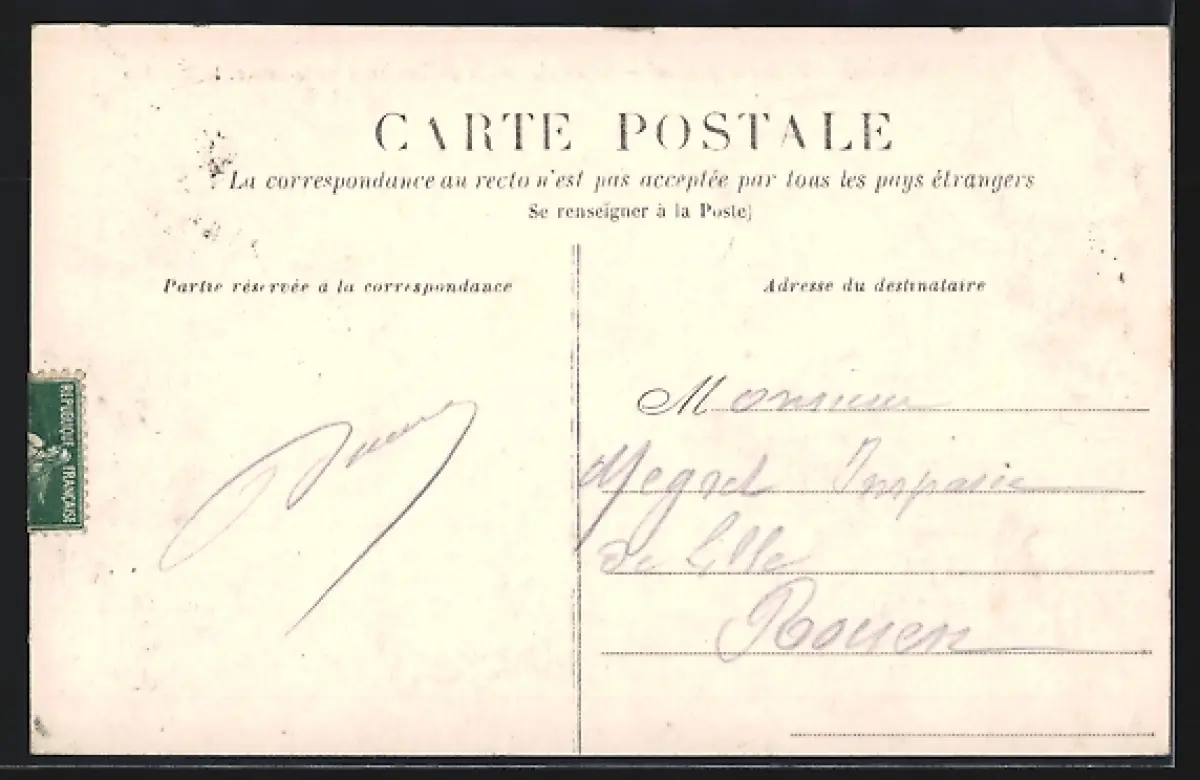 CARTE POSTALE
La correspondance au recto n'est pas acceptée par tous les pays étrangers
Se renseigner à la Poste)
Partie réservée à la correspondance
Adresse du destinataire
Monsieur
Megret Impasse
de Lille
Rouen
REPUBLIQUE FRANCAISE